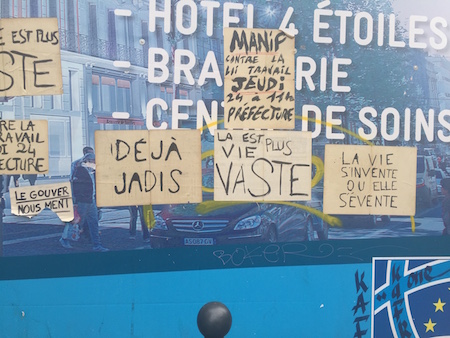 - HOTEL 4 ÉTOILES
- BRA ERIE
- CEN DE SOINS
E EST PLUS
STE
MANIF
CONTRE LA
LOI TRAVAIL
JEUDI
24 À 11H
PRÉFECTURE
RE LA
RAVAIL
DI 24
ECTURE
DÉJÀ
JADIS
LA EST PLUS
VIE
VASTE
LA VIE
S'INVENTE
QU ELLE
SEVENTE
LE GOUVER
NOUS MENT